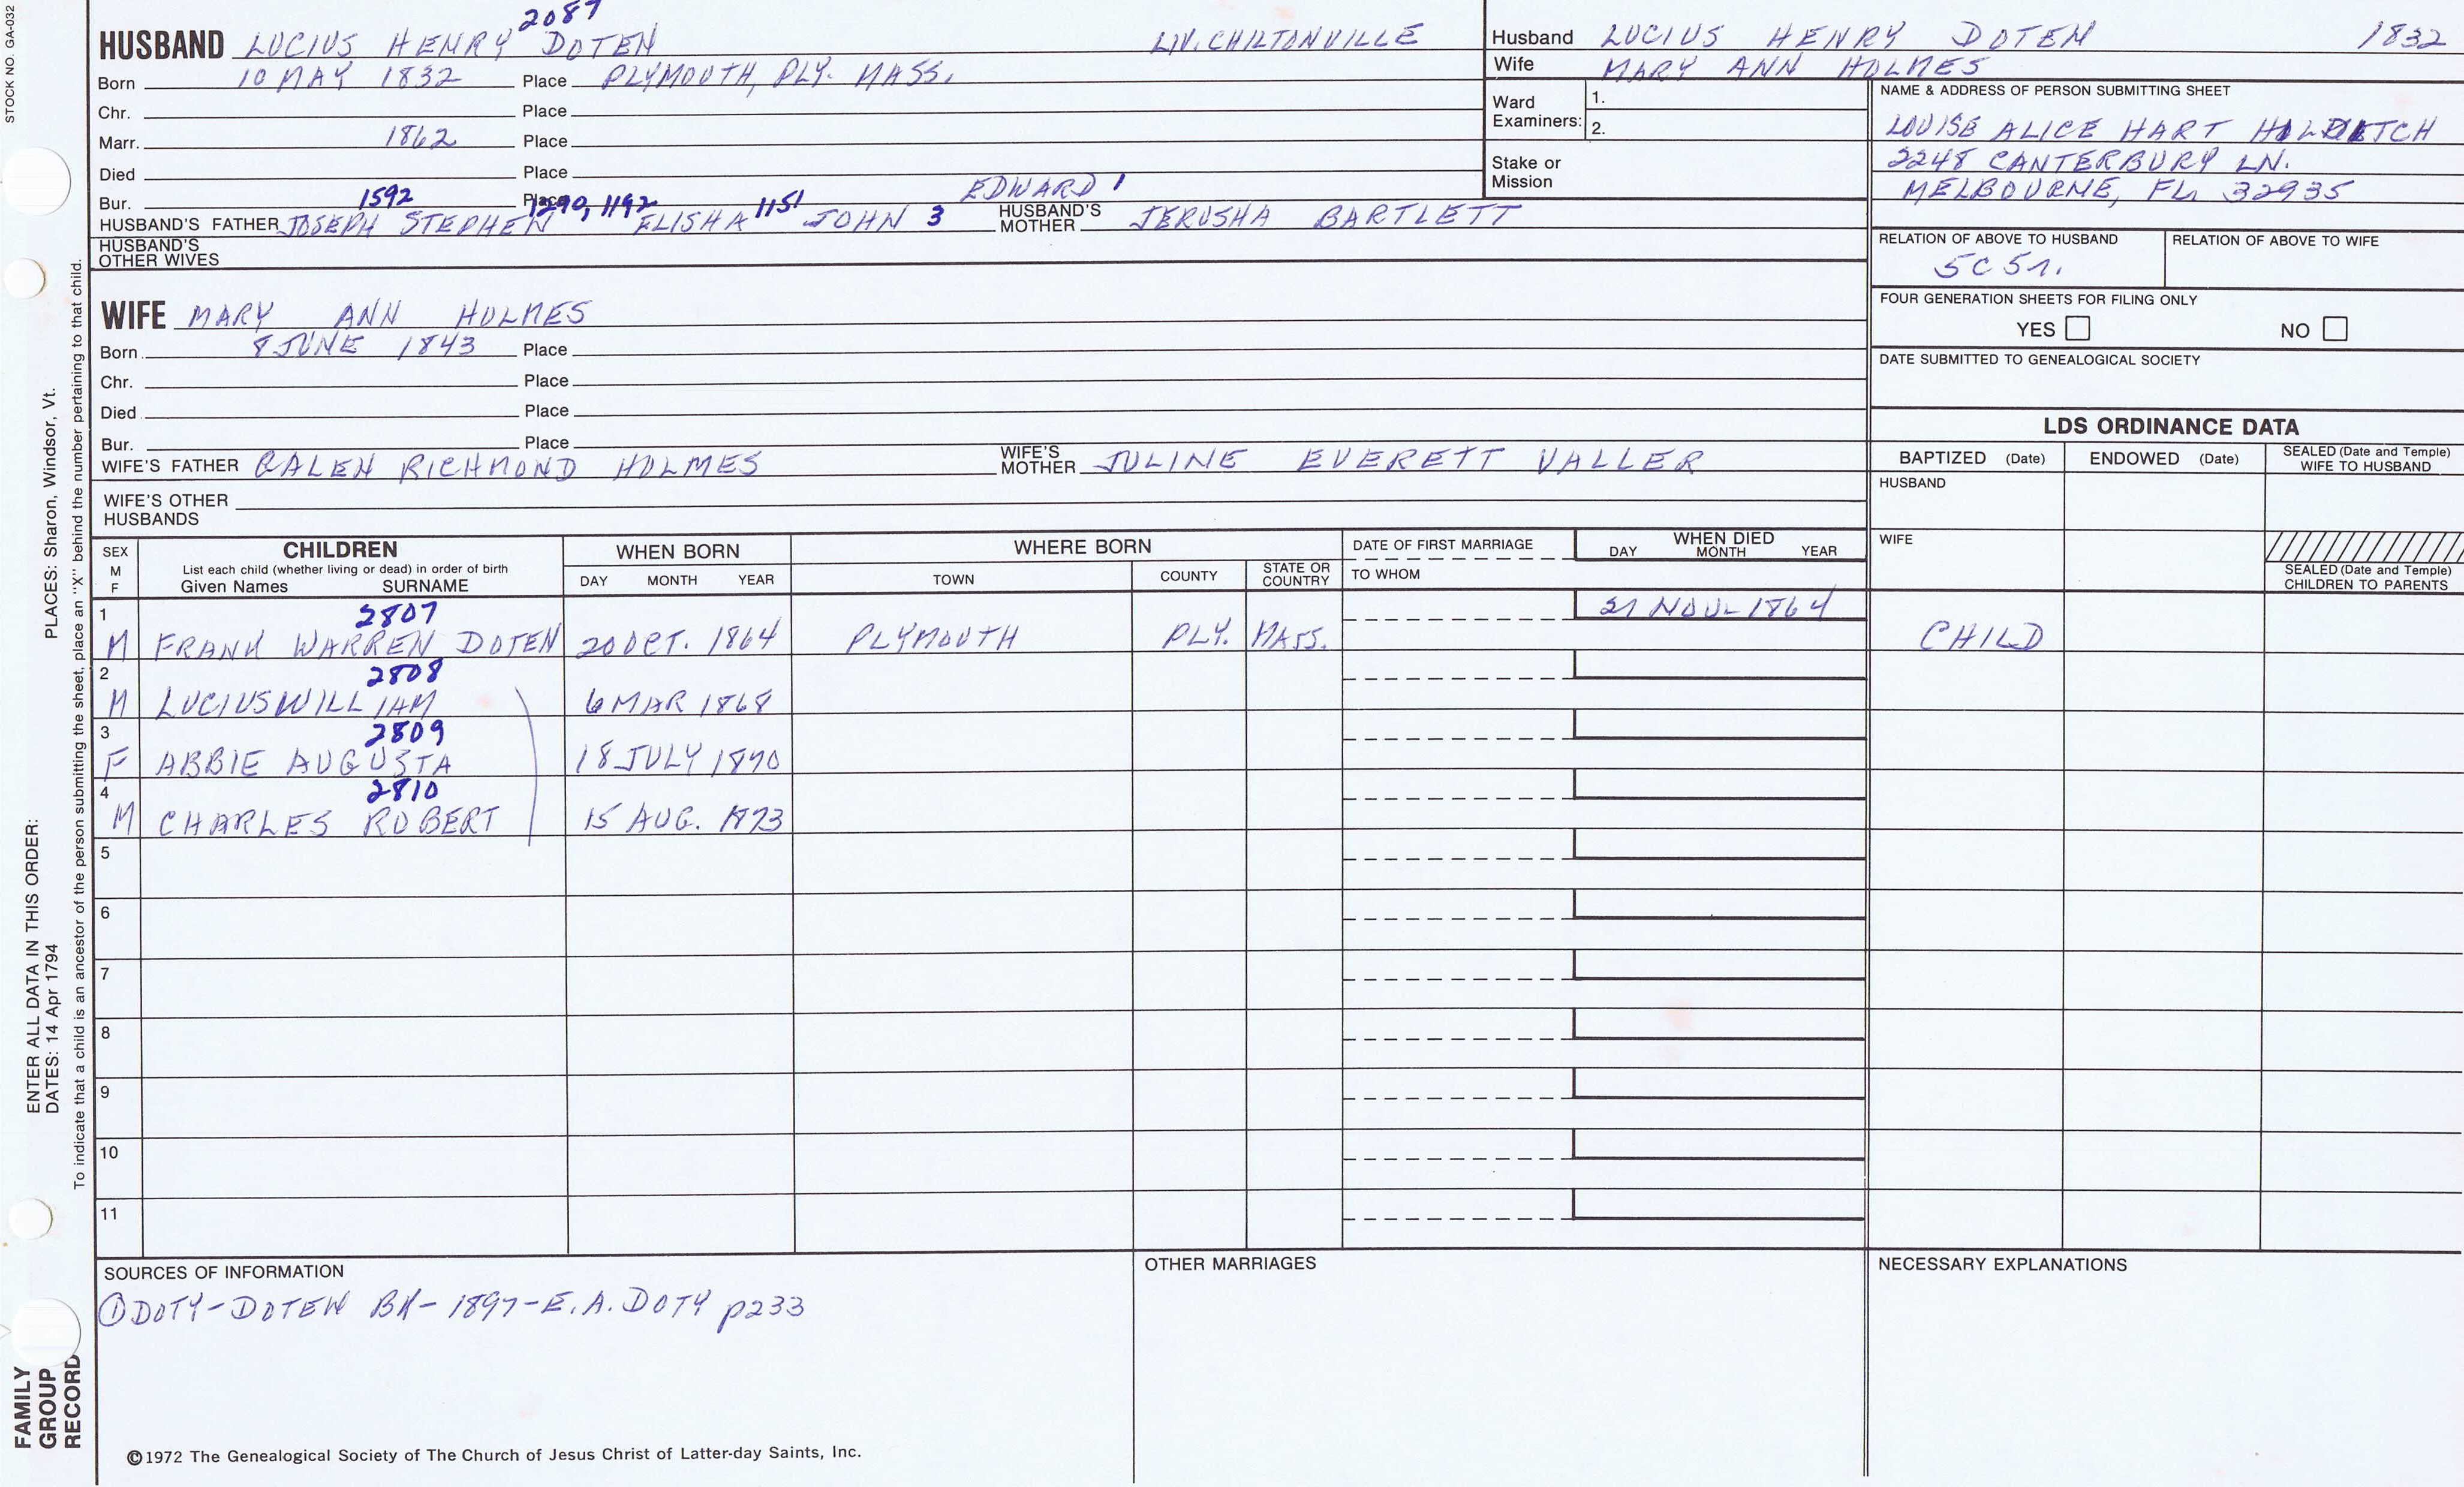 STOCK NO. GA-032
2087
HUSBAND LUCIUS HENRY DOTEN LIV. CHILTONVILLE
Born 10 MAY 1832 Place PLYMOUTH, PLY. MASS.
Chr. Place
Marr. 1862 Place
Died Place
Bur. Place
1592 1290, 1192 1151 EDWARD 1
HUSBAND'S FATHER JOSEPH STEPHEN ELISHA JOHN 3 HUSBAND'S MOTHER JERUSHA BARTLETT
HUSBAND'S OTHER WIVES
WIFE MARY ANN HOLMES
Born 8 JUNE 1843 Place
Chr. Place
Died Place
Bur. Place
WIFE'S FATHER GALEN RICHMOND HOLMES WIFE'S MOTHER JULINE EVERETT VALLER
WIFE'S OTHER HUSBANDS
Husband LUCIUS HENRY DOTEN 1832
Wife MARY ANN HOLMES
Ward Examiners: 1.
2.
Stake or Mission
NAME & ADDRESS OF PERSON SUBMITTING SHEET
LOUISE ALICE HART
2248 CANTERBURY LN.
MELBOURNE, FL 32935
RELATION OF ABOVE TO HUSBAND RELATION OF ABOVE TO WIFE
5C 5r.
FOUR GENERATION SHEETS FOR FILING ONLY
YES NO
DATE SUBMITTED TO GENEALOGICAL SOCIETY
LDS ORDINANCE DATA
BAPTIZED (Date) ENDOWED (Date) SEALED (Date and Temple) WIFE TO HUSBAND
HUSBAND
WIFE
SEALED (Date and Temple) CHILDREN TO PARENTS
SEX M F
CHILDREN
List each child (whether living or dead) in order of birth
Given Names SURNAME
WHEN BORN
DAY MONTH YEAR
WHERE BORN
TOWN COUNTY STATE OR COUNTRY
DATE OF FIRST MARRIAGE
TO WHOM
WHEN DIED
DAY MONTH YEAR
1 2807 21 NOV 1864
M FRANK WARREN DOTEN 20 OCT. 1864 PLYMOUTH PLY. MASS. CHILD
2 2808
M LUCIUS WILLIAM 6 MAR 1868
3 2809
F ABBIE AUGUSTA 18 JULY 1870
4 2810
M CHARLES ROBERT 15 AUG. 1873
5
6
7
8
9
10
11
SOURCES OF INFORMATION
① DOTY-DOTEN BK-1897-E.A. DOTY p233
OTHER MARRIAGES
NECESSARY EXPLANATIONS
©1972 The Genealogical Society of The Church of Jesus Christ of Latter-day Saints, Inc.
FAMILY
GROUP
RECORD
ENTER ALL DATA IN THIS ORDER:
DATES: 14 Apr 1794 PLACES: Sharon, Windsor, Vt.
To indicate that a child is an ancestor of the person submitting the sheet, place an "X" behind the number pertaining to that child.